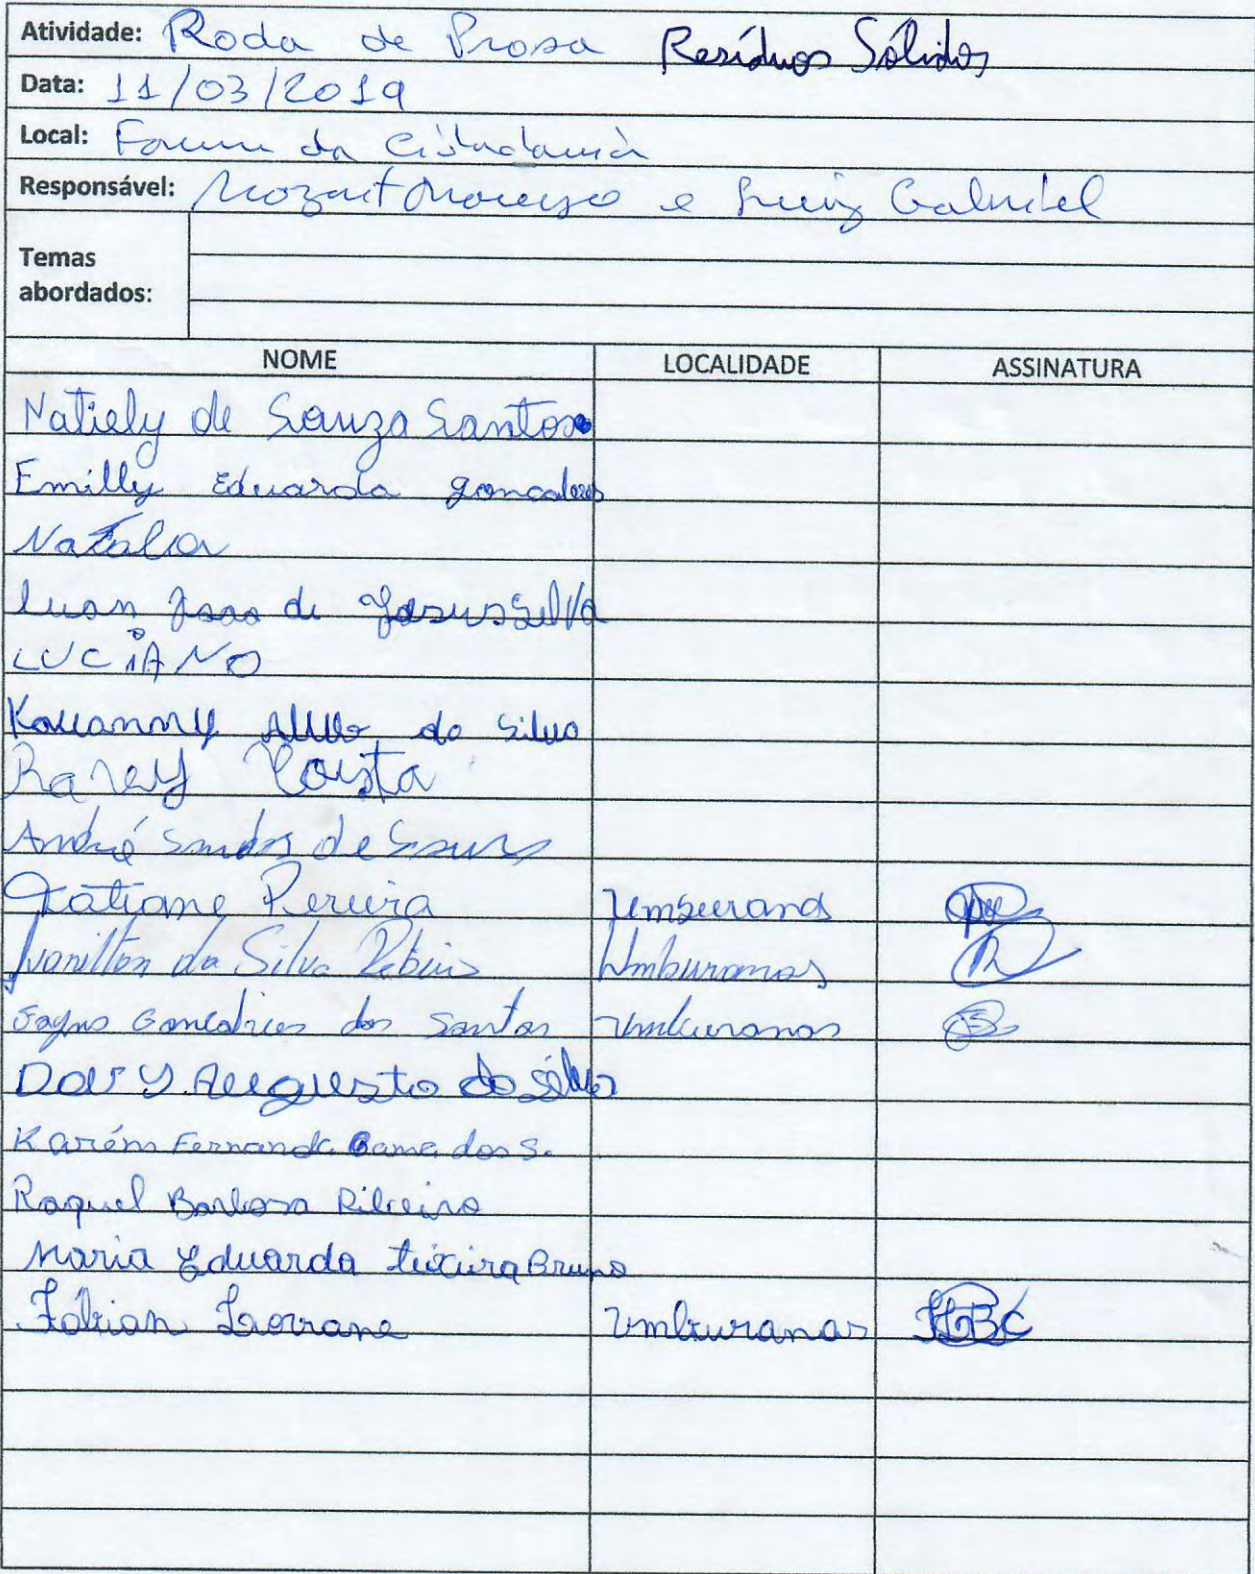 Atividade: Roda de Prosa Resíduos Sólidos
Data: 11/03/2019
Local: Forum da Cidadania
Responsável: Mozart e Luiz Gabriel
Temas
abordados:
NOME LOCALIDADE ASSINATURA
Natiely de Souza Santos
Emilly Eduarda goncalves
Natalia
luan joao de Jesus Silva
LUCiANO
Kauanny Alves da Silva
Costa
André Santos de Souza
Tatiane Pereira Umburanas
Ivanilton da Silva Umburanas
dos Santos Umburanas
Davy Augusto da Silva
Karém Fernanda Gama dos S.
Raquel Barbosa Ribeiro
Maria Eduarda teixeira Bruno
Fabian Lorrane Umburanas